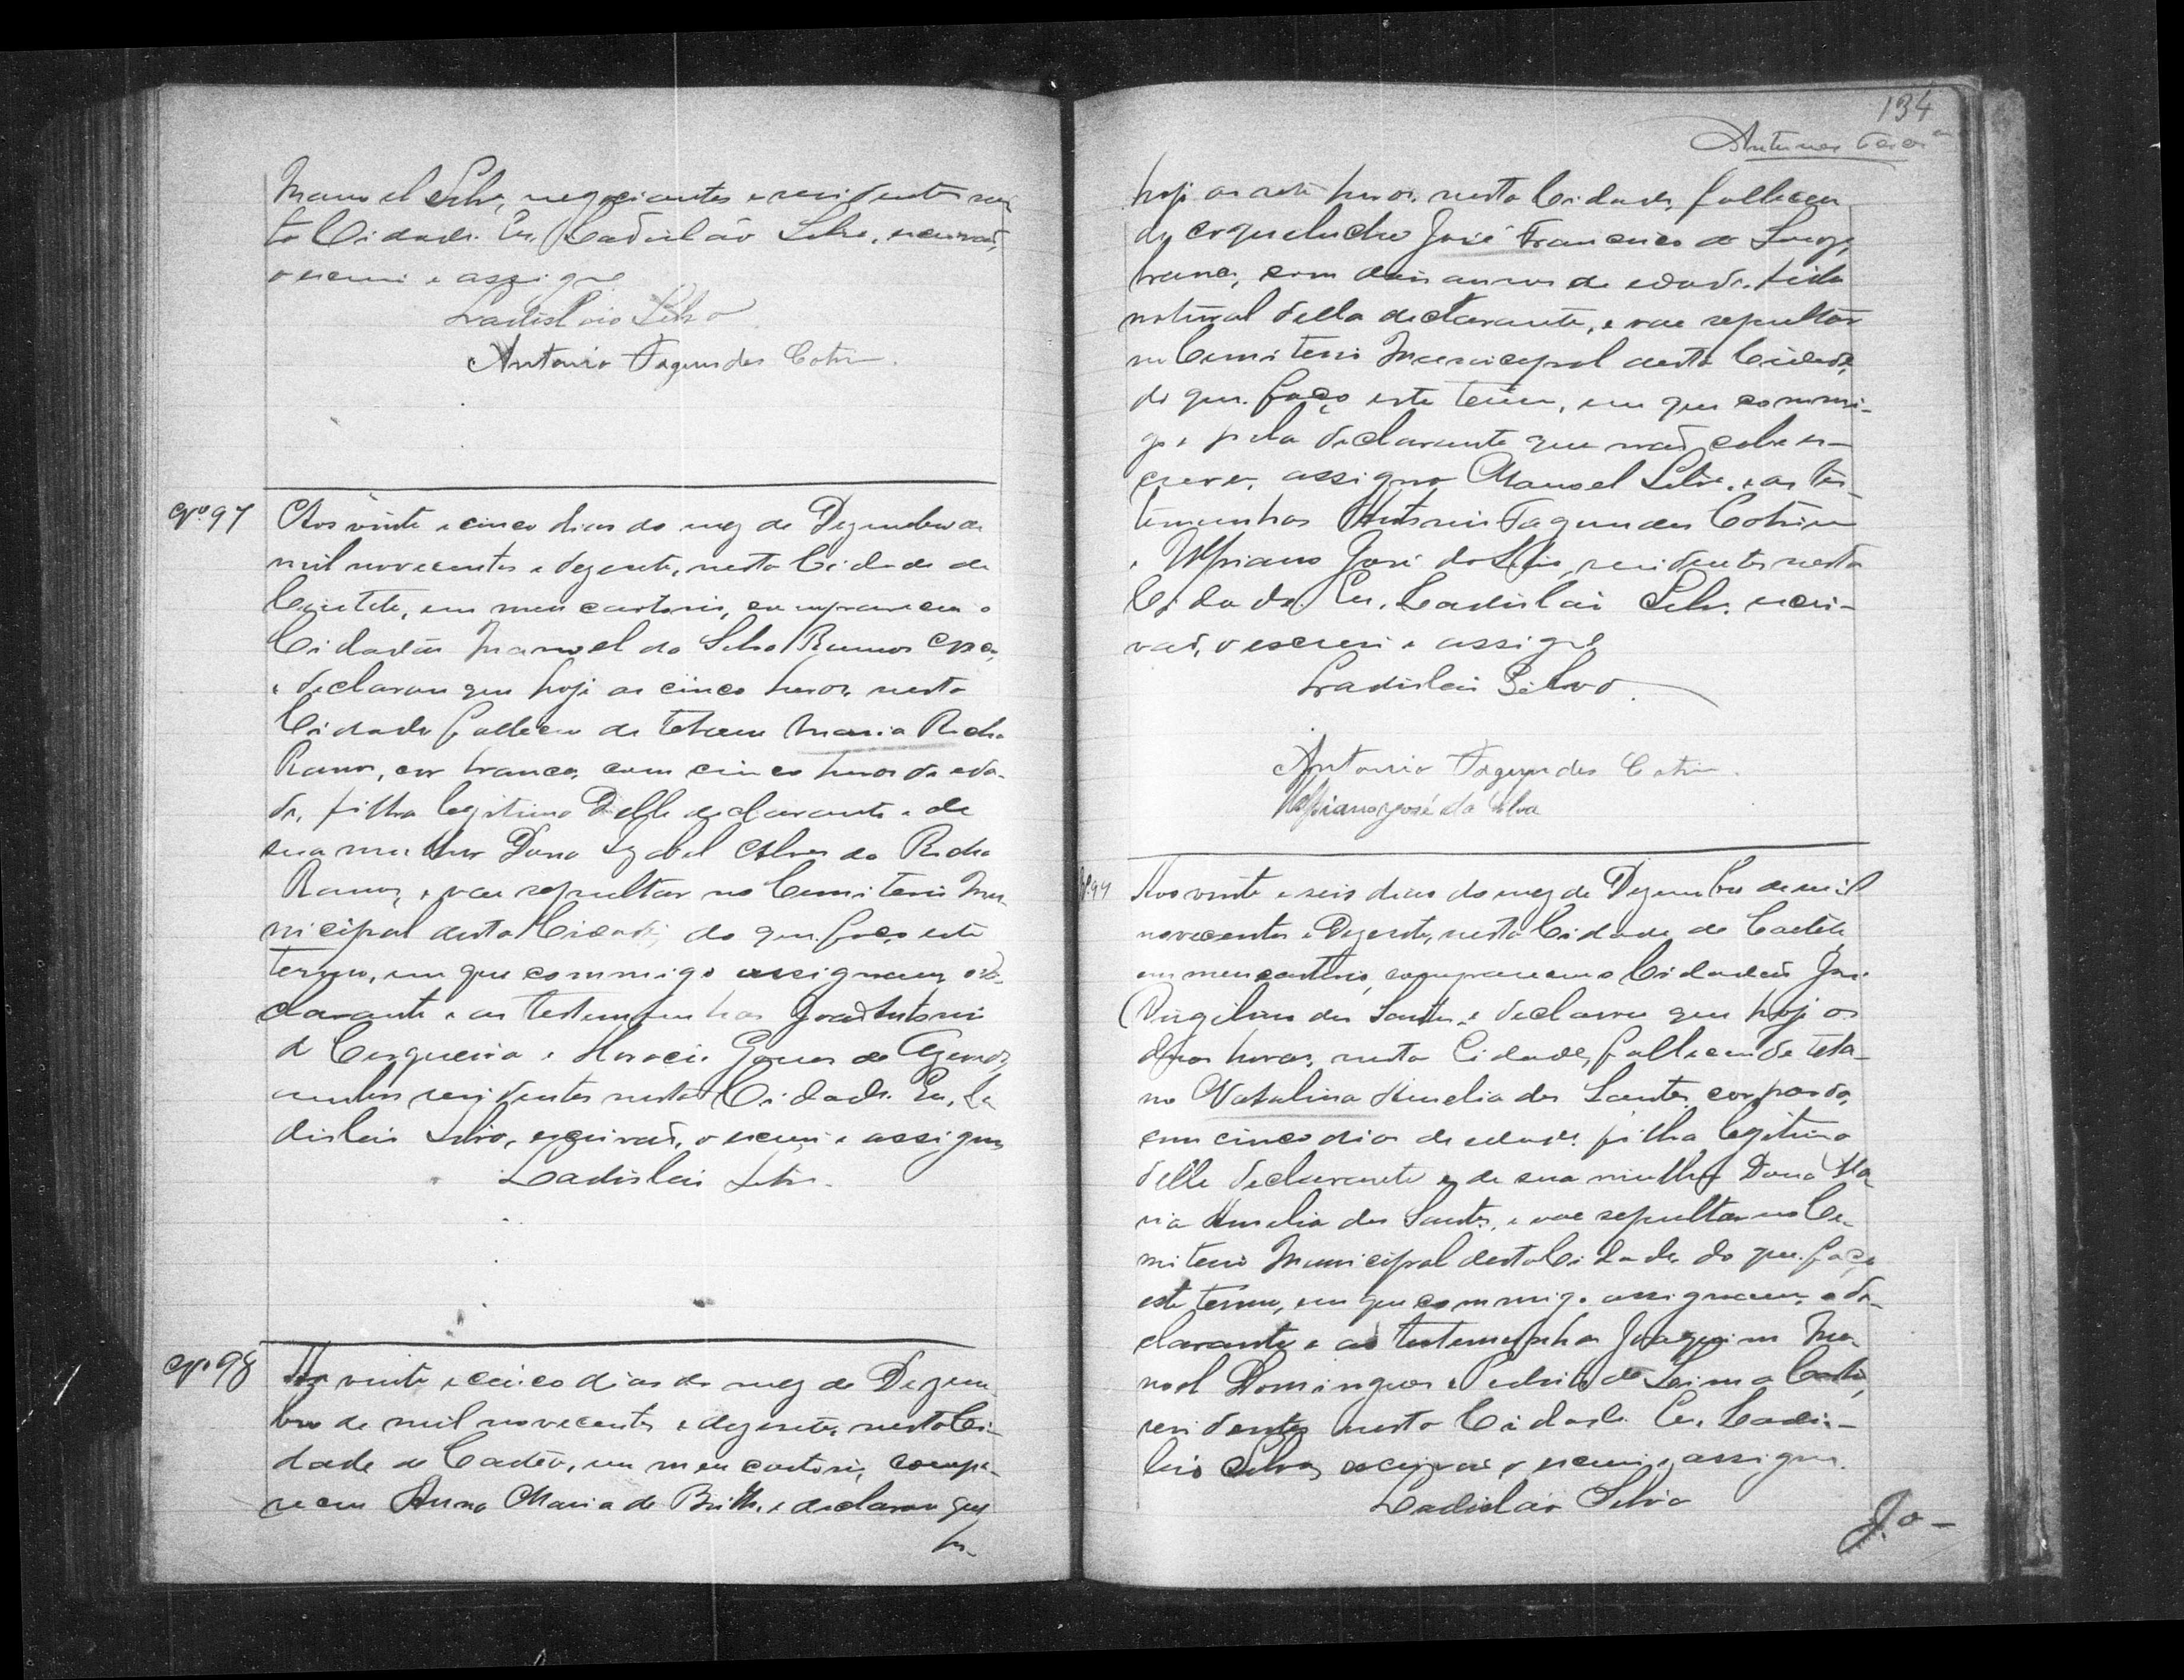 Manoel Silva, negociantes e residentes nes
ta Cidade. Eu, Ladislão Silva, escrivaõ,
o escrevi e assigno
Ladislao Silva
Antonio Fagundes Cotrim.
Nº 97
Aos vinte e cinco dias do mez de Dezembro de
mil novecentos e dezesete, nesta Cidade de
Caeteté, em meu cartorio, compareceu o
Cidadão Manoel da Silva Ramos
e declarou que hoje as cinco horas nesta
Cidade falleceu de tetano Maria Rocha
Ramos, cor branca, com cinco horas de eda-
de, filha legitima delle declarante e de
sua mulher Dona Izabel Alves da Rocha
Ramos, e vae sepultar no Cemiterio Mu-
nicipal desta Cidade, do que faço este
termo, em que commigo assignam o de-
clarante e as testemunhas João Antonio
de Cerqueira e Horacio Gomes de Azevedo,
ambos residentes nesta Cidade. Eu, La
dislau Silva, escrivaõ, o escrevi e assigno
Ladislau Silva.
Nº 98
Aos vinte e cinco dias do mez de Dezem
bro de mil novecentos e dezesete, nesta Ci-
dade de Caeteté, em meu cartorio, compa-
receu Anna Maria de Britto, e declarou que
ho-
134
Antunes
hoje as sete horas, nesta Cidade, falleceu
de coqueluche José Francisco de
branca, com dois annos de edade, filho
natural della declarante, e vae sepultar
no Cemiterio Municipal desta Cidade,
do que faço este termo, em que commi-
go e pela declarante que naõ sabe es-
crever, assigna Manoel Silva, e as tes-
temunhas Antonio Fagundes Cotrim
e Ulpiano José da Silva, residentes nesta
Cidade. Eu, Ladislau Silva, escri-
vaõ, o escrevi e assigno
Ladislau Silva.
Antonio Fagundes Cotrim.
Ulpiano José da Silva
Nº 99
Aos vinte e seis dias do mez de Dezembro de mil
novecentos e dezesete, nesta Cidade de Caeteté
em meu cartorio, compareceu o Cidadaõ José
Virgilino dos Santos, e declarou que hoje as
duas horas, nesta Cidade, falleceu de teta-
no Natalina Amelia dos Santos, cor parda,
com cinco dias de edade, filha legitima
delle declarante e de sua mulher Dona Ma
ria Amelia dos Santos, e vae sepultar no Ce-
miterio Municipal desta Cidade, do que faço
este termo, em que commigo assignam, o de-
clarante e as testemunhas Joaquim Ma-
noel Domingues e de Lima
residentes nesta Cidade. Eu, Ladis-
lau Silva, escrivaõ, o escrevi e assigno.
Ladislao Silva